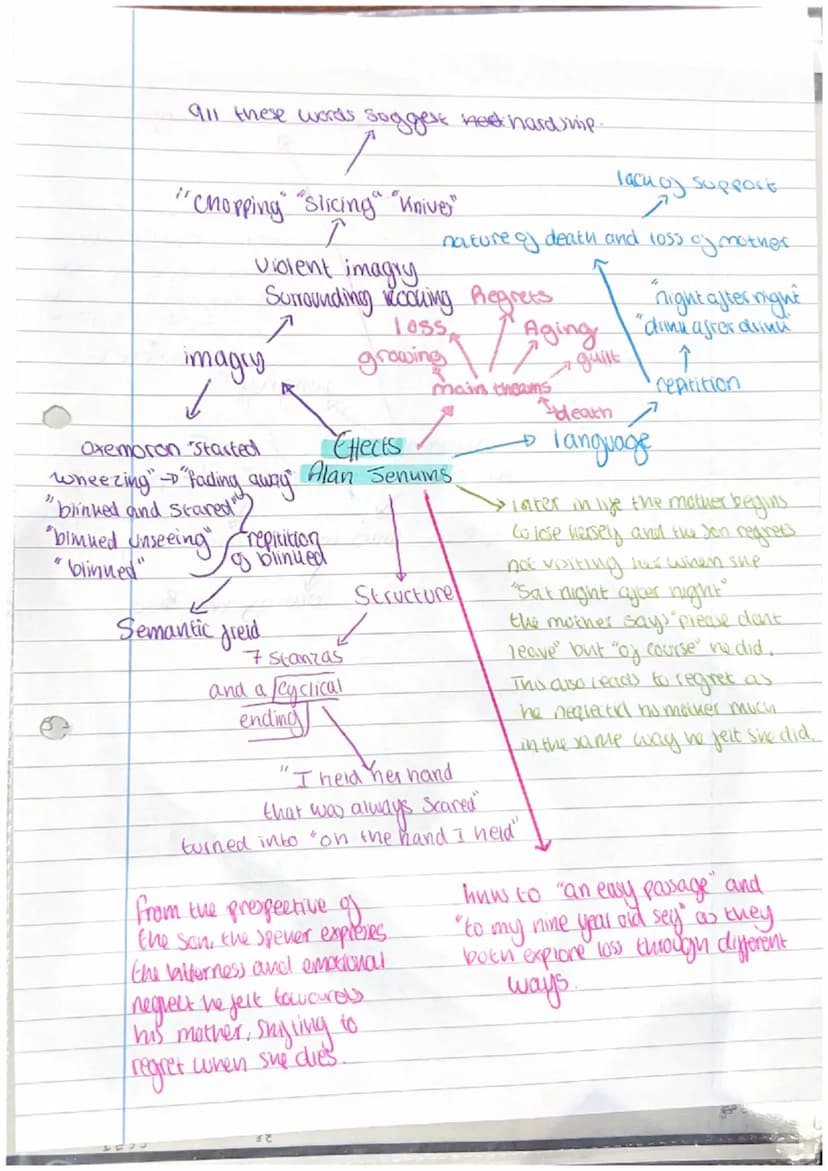 All these words suggest hardship.
"Chopping" "Slicing" "Knives"
Violent imagry
Surrounding
imagry
lack of support
nature of death and loss of mother
"night after night"
"drink after drink"
repitition
language
Regrets
loss
Aging
growing
guilt
main theams
death
Effects
Alan Jenkins
oxemoron "started
wheezing" → "fading away"
"blinked and stared"
"blinked unseeing"
"blinked"
repitition
of blinked
Semantic freid
Structure
7 stanzas
and a cyclical
ending
"I held her hand
that was always scared"
turned into "on the hand I held"
later in life the mother begins
to lose herself and the son regrets
not visiting her when she
"Sat night after night"
the mother says "please dont
leave" but "of course" he did.
This also leads to regret as
he neglected his mother much
in the same way he felt she did.
from the prespective of
the son, the speker expreses
the bitterness and emotional
neglect he felt towards
his mother, shifting to
regret when she dies.
links to "an easy passage" and
"to my nine year old self" as they
both explore loss through different
ways.